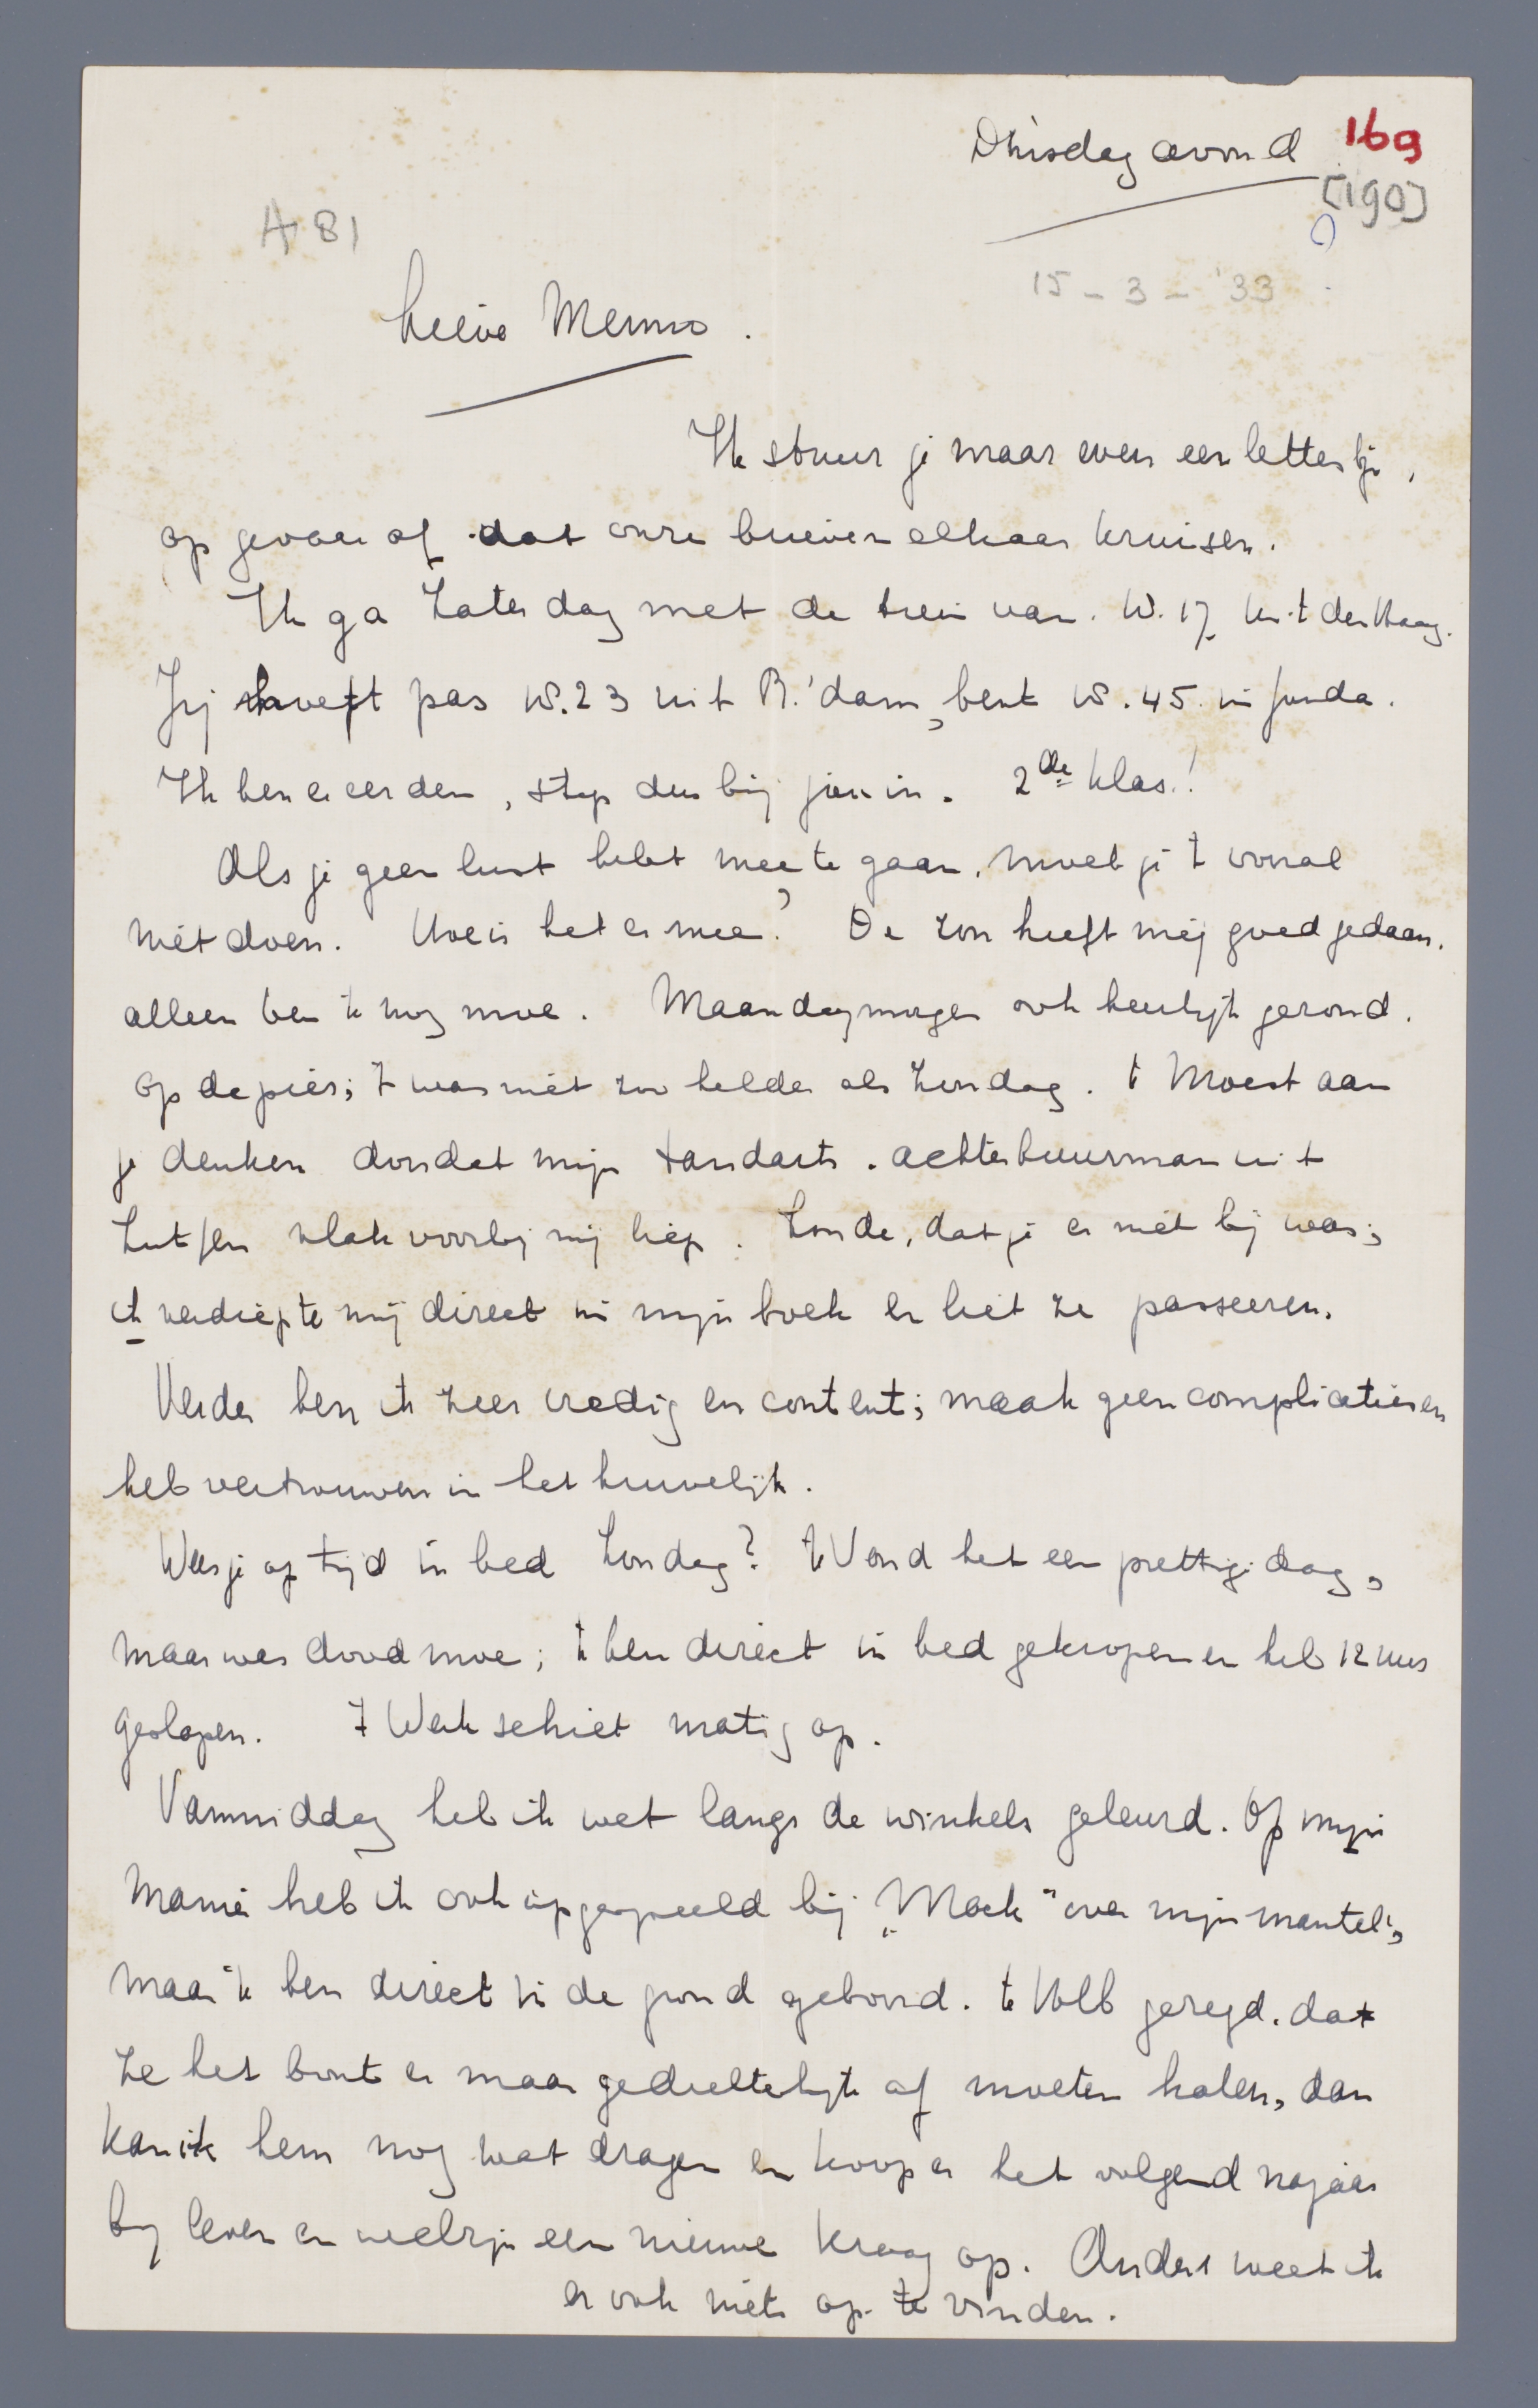 Dinsdagavond 169
[190]
A 81
15-3-'33
Lieve Menno.
Ik stuur je maar even een lettertje,
op gevaar af dat onze brieven elkaar kruisen.
Ik ga Zaterdag met de trein van 10.17 uit den Haag.
Jij hoeft pas 10.23 uit R.'dam, bent 10.45 in Gouda.
Ik ben er eerder, stap dus bij jou in. 2de klas!
Als je geen lust hebt mee te gaan, moet je 't vooral
niet doen. Hoe is het er mee? De zon heeft mij goed gedaan,
alleen ben ik nog moe. Maandagmorgen ook heerlijk gezond.
op de pier; 't was niet zoo helder als Zondag. 'k Moest aan
je denken doordat mijn tandarts-achterbuurman uit
Zutfen vlak voorbij mij liep. Zonde, dat je er niet bij was;
ik verdiepte mij direct in mijn boek en liet ze passeeren.
Verder ben ik zeer vredig en content; maak geen complicaties en
heb vertrouwen in het huwelijk.
Was je op tijd in bed Zondag? 'k Vond het een prettige dag,
maar was doodmoe; 'k ben direct in bed gekropen en heb 12 uur
geslapen. 't Werk schiet matig op.
Vanmiddag heb ik wat langs de winkels geleurd. Op mijn
manier heb ik ook opgespeeld bij „Mack" over mijn mantel,
maar 'k ben direct in de grond geboord. 'k Heb gezegd, dat
ze het bont er maar gedeeltelijk af moeten halen, dan
kan ik hem nog wat dragen en koop er het volgend najaar
bij leven en welzijn een nieuwe kraag op. Anders weet ik
er ook niets op te vinden.